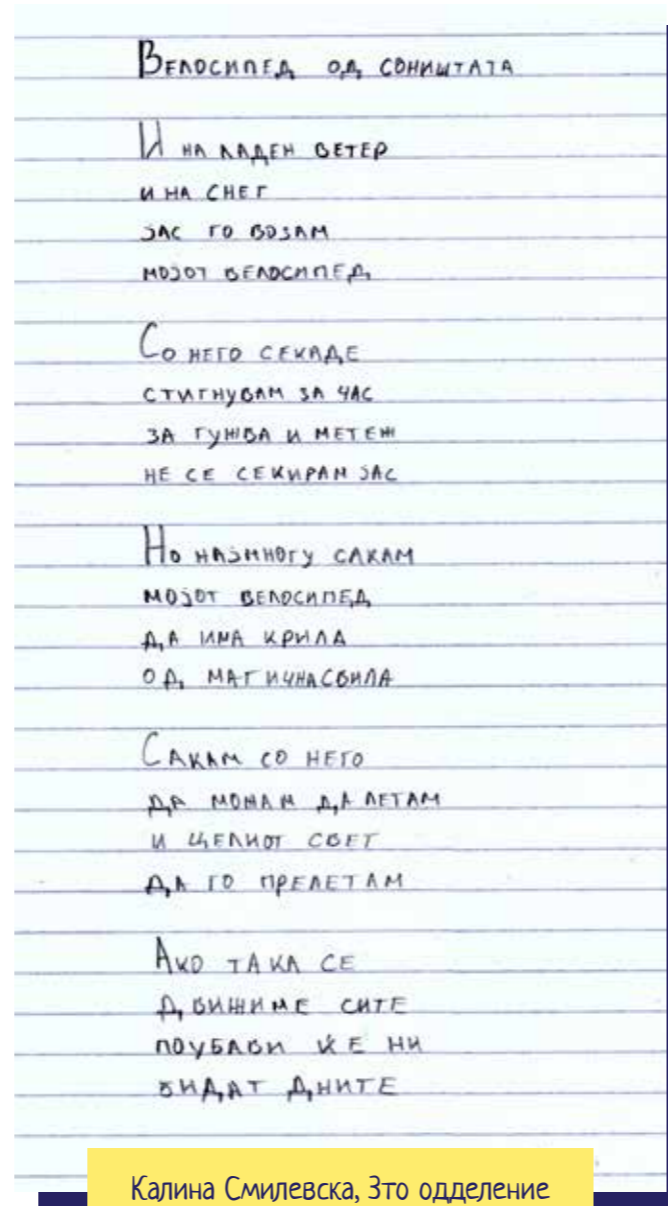 Велосипед од соништата
И на ладен ветер
и на снег
јас го возам
мојот велосипед
Со него секаде
стигнувам за час
за гужва и метеж
не се секирам јас
Но најмногу сакам
мојот велосипед
да има крила
од магичнасвила
Сакам со него
да можам да летам
и целиот свет
да го прелетам
Ако така се
движиме сите
поубави ќе ни
бидат дните
Калина Смилевска, 3то одделение